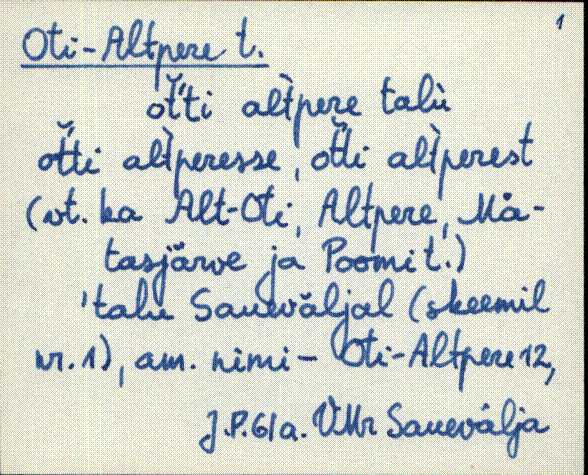 1
Oti-Altpere t.
oťťi alt̀pere talù
oťťi alt̀peresse, oťťi alt̀perest
(vt. ka Alt-Oti, Altpere, Mä-
tasjärve ja Poomi t.)
'talu Sauevăljal (skeemil
nr. 1), am. nimi – Oti-Altpere 12,
J.P. 61a. VMr Sauevälja